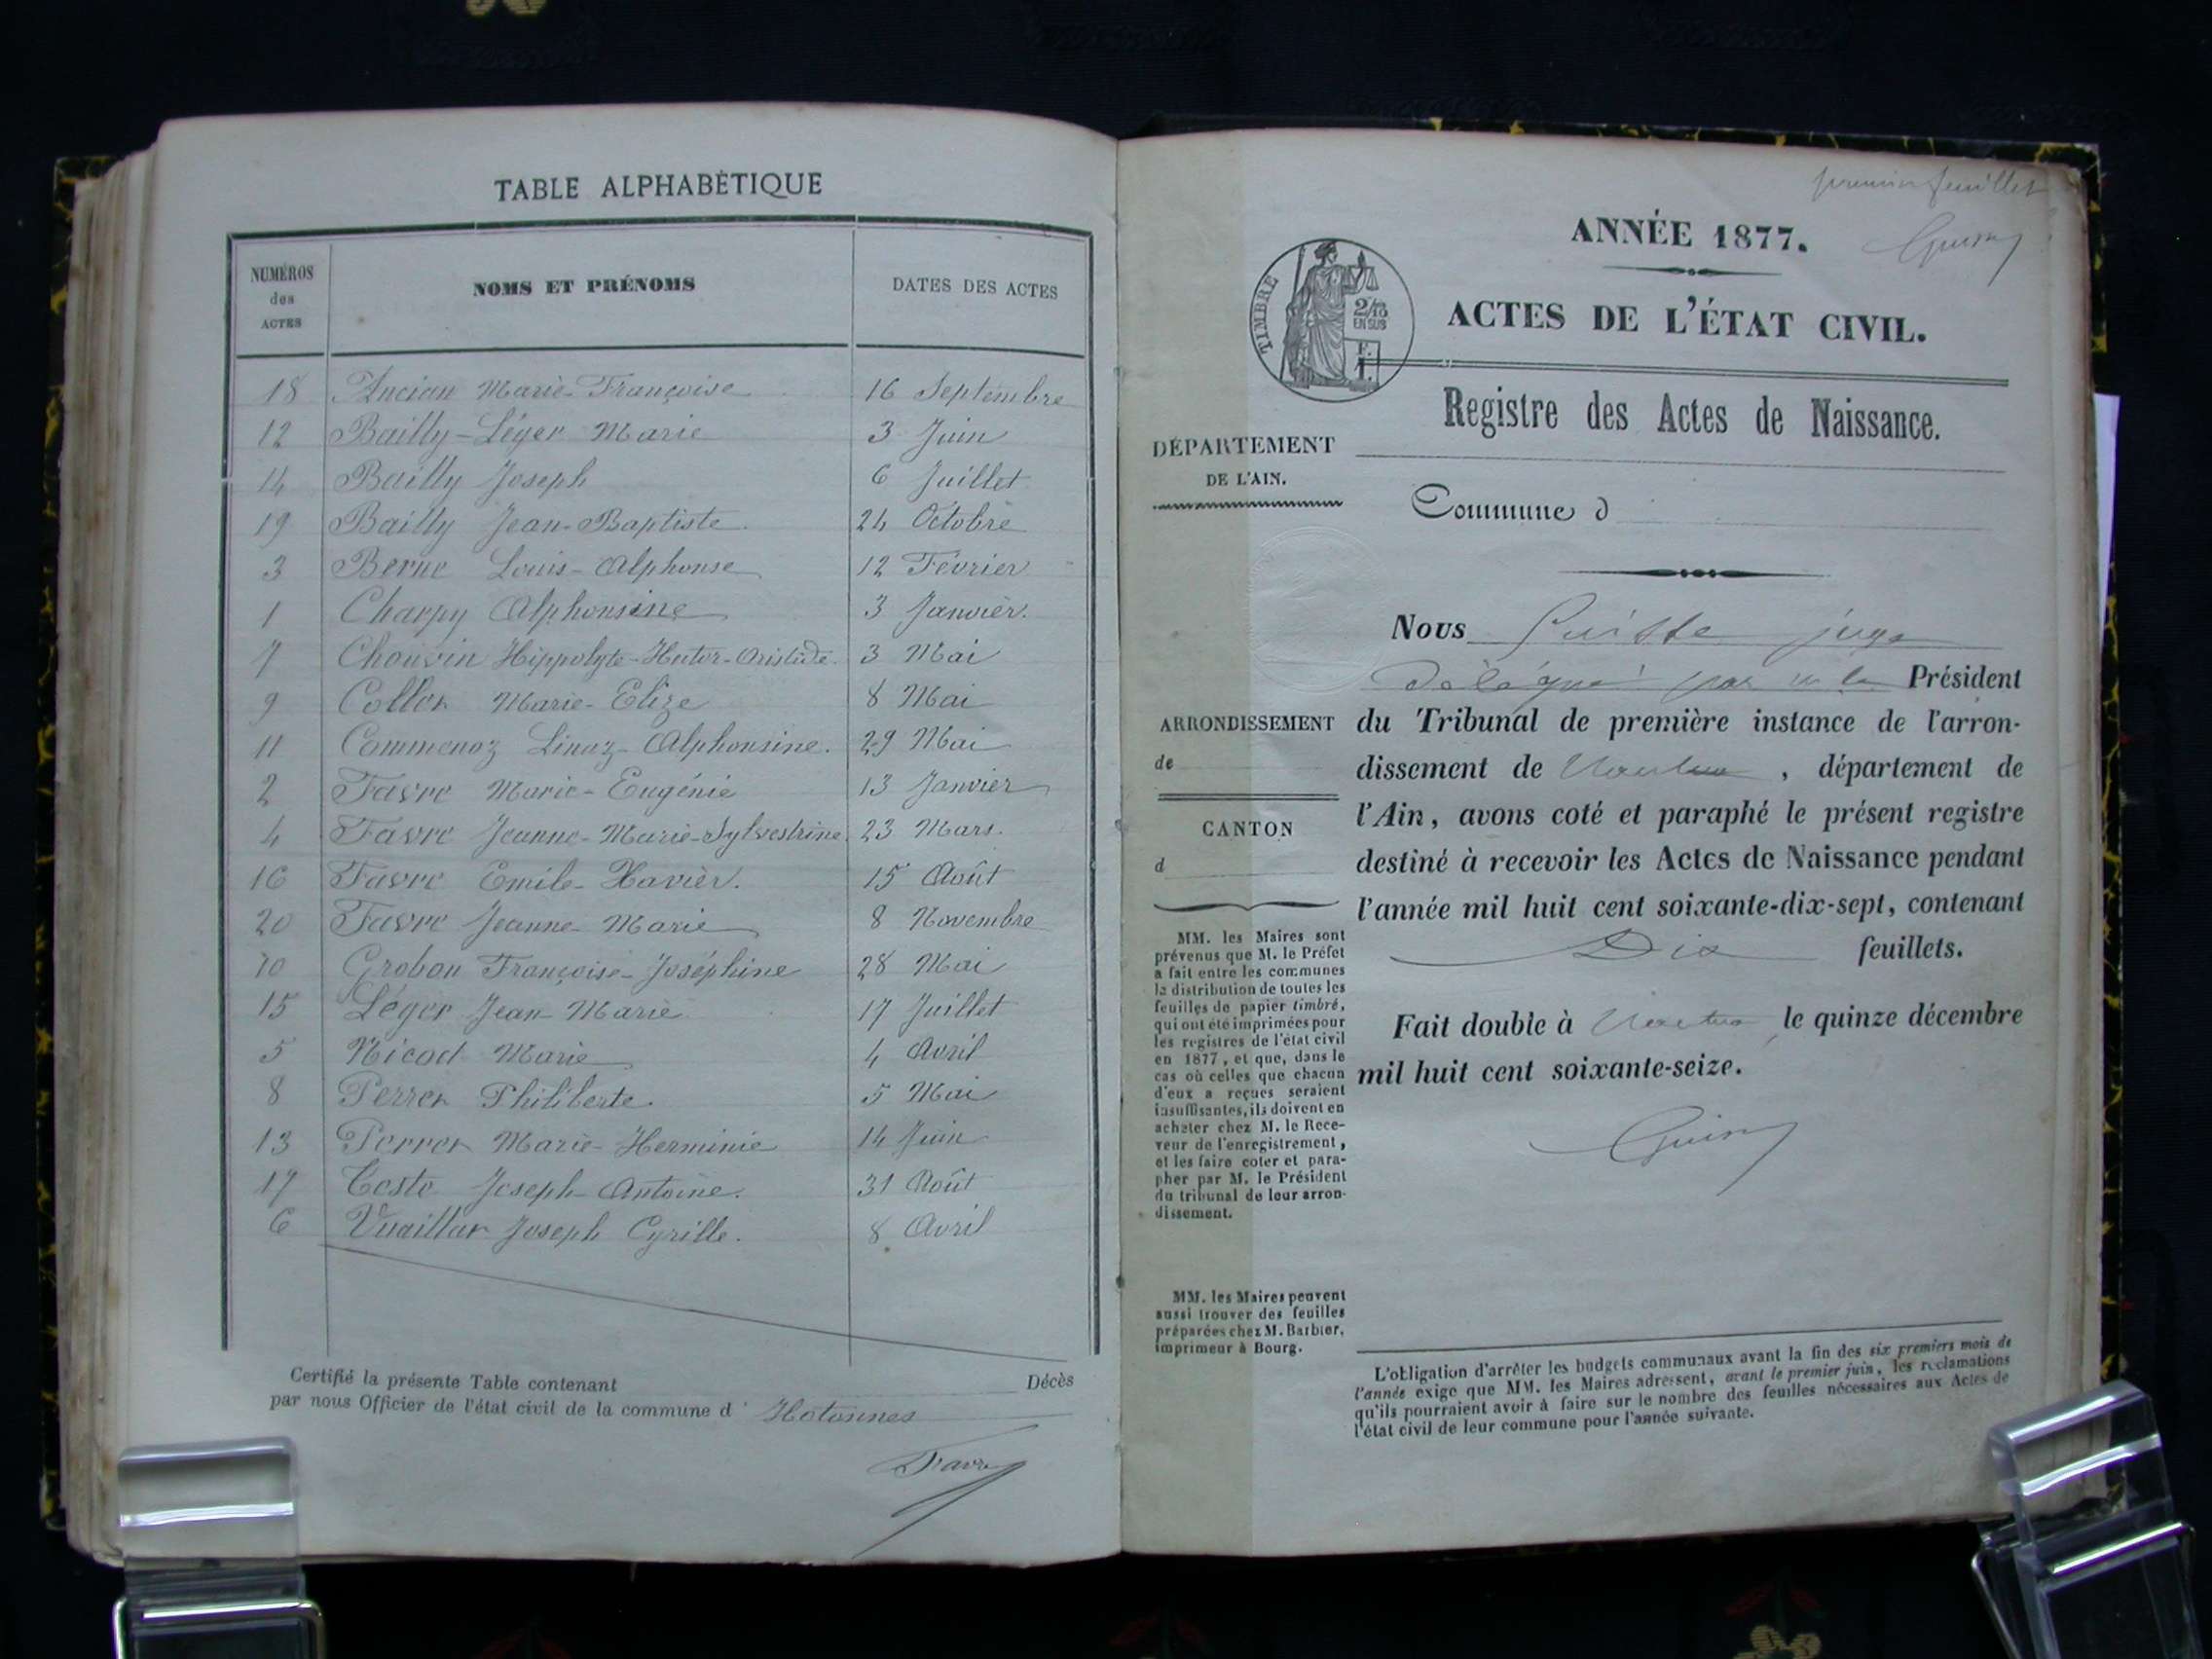 TABLE ALPHABÉTIQUE
NUMÉROS des ACTES
NOMS ET PRÉNOMS
DATES DES ACTES
18 Ancian Marie-Françoise 16 Septembre
12 Bailly-Léger Marie 3 Juin
14 Bailly Joseph 6 Juillet
19 Bailly Jean-Baptiste. 24 Octobre
3 Berne Louis-Alphonse 12 Février
1 Charpy Alphonsine 3 Janvier.
7 Chouvin Hippolyte-Hector-Aristide. 3 Mai
9 Collet Marie-Elize 8 Mai
11 Commenoz Linaz-Alphonsine. 29 Mai
2 Favre Marie-Eugénie 13 Janvier
4 Favre Jeanne-Marie-Sylvestrine. 23 Mars.
16 Favre Emile-Xavier. 15 Août
20 Favre Jeanne-Marie 8 Novembre
10 Grobon Françoise-Joséphine 28 Mai
15 Léger Jean-Marie. 17 Juillet
5 Nicod Marie 4 Avril
8 Perret Philiberte. 5 Mai
13 Perret Marie-Herminie 14 Juin
17 Teste Joseph-Antoine. 31 Août
6 Vuaillat Joseph Cyrille. 8 Avril
Certifié la présente Table contenant Décès
par nous Officier de l'état civil de la commune d'Hotonnes
Favre
premier feuillet
ANNÉE 1877.
TIMBRE
2/10
EN SUS
F.
1.
ACTES DE L'ÉTAT CIVIL.
Registre des Actes de Naissance.
DÉPARTEMENT
DE L'AIN.
Commune d
Nous juge
délégué par le Président
ARRONDISSEMENT
de
CANTON
d
du Tribunal de première instance de l'arron-
dissement de Nantua, département de
l'Ain, avons coté et paraphé le présent registre
destiné à recevoir les Actes de Naissance pendant
l'année mil huit cent soixante-dix-sept, contenant
Dix feuillets.
Fait double à Nantua, le quinze décembre
mil huit cent soixante-seize.
MM. les Maires sont
prévenus que M. le Préfet
a fait entre les communes
la distribution de toutes les
feuilles de papier timbré,
qui ont été imprimées pour
les registres de l'état civil
en 1877, et que, dans le
cas où celles que chacun
d'eux a reçues seraient
insuffisantes, ils doivent en
acheter chez M. le Rece-
veur de l'enregistrement,
et les faire coter et para-
pher par M. le Président
du tribunal de leur arron-
dissement.
MM. les Maires peuvent
aussi trouver des feuilles
préparées chez M. Barbier,
imprimeur à Bourg.
L'obligation d'arrêter les budgets communaux avant la fin des six premiers mois de
l'année exige que MM. les Maires adressent, avant le premier juin, les réclamations
qu'ils pourraient avoir à faire sur le nombre des feuilles nécessaires aux Actes de
l'état civil de leur commune pour l'année suivante.